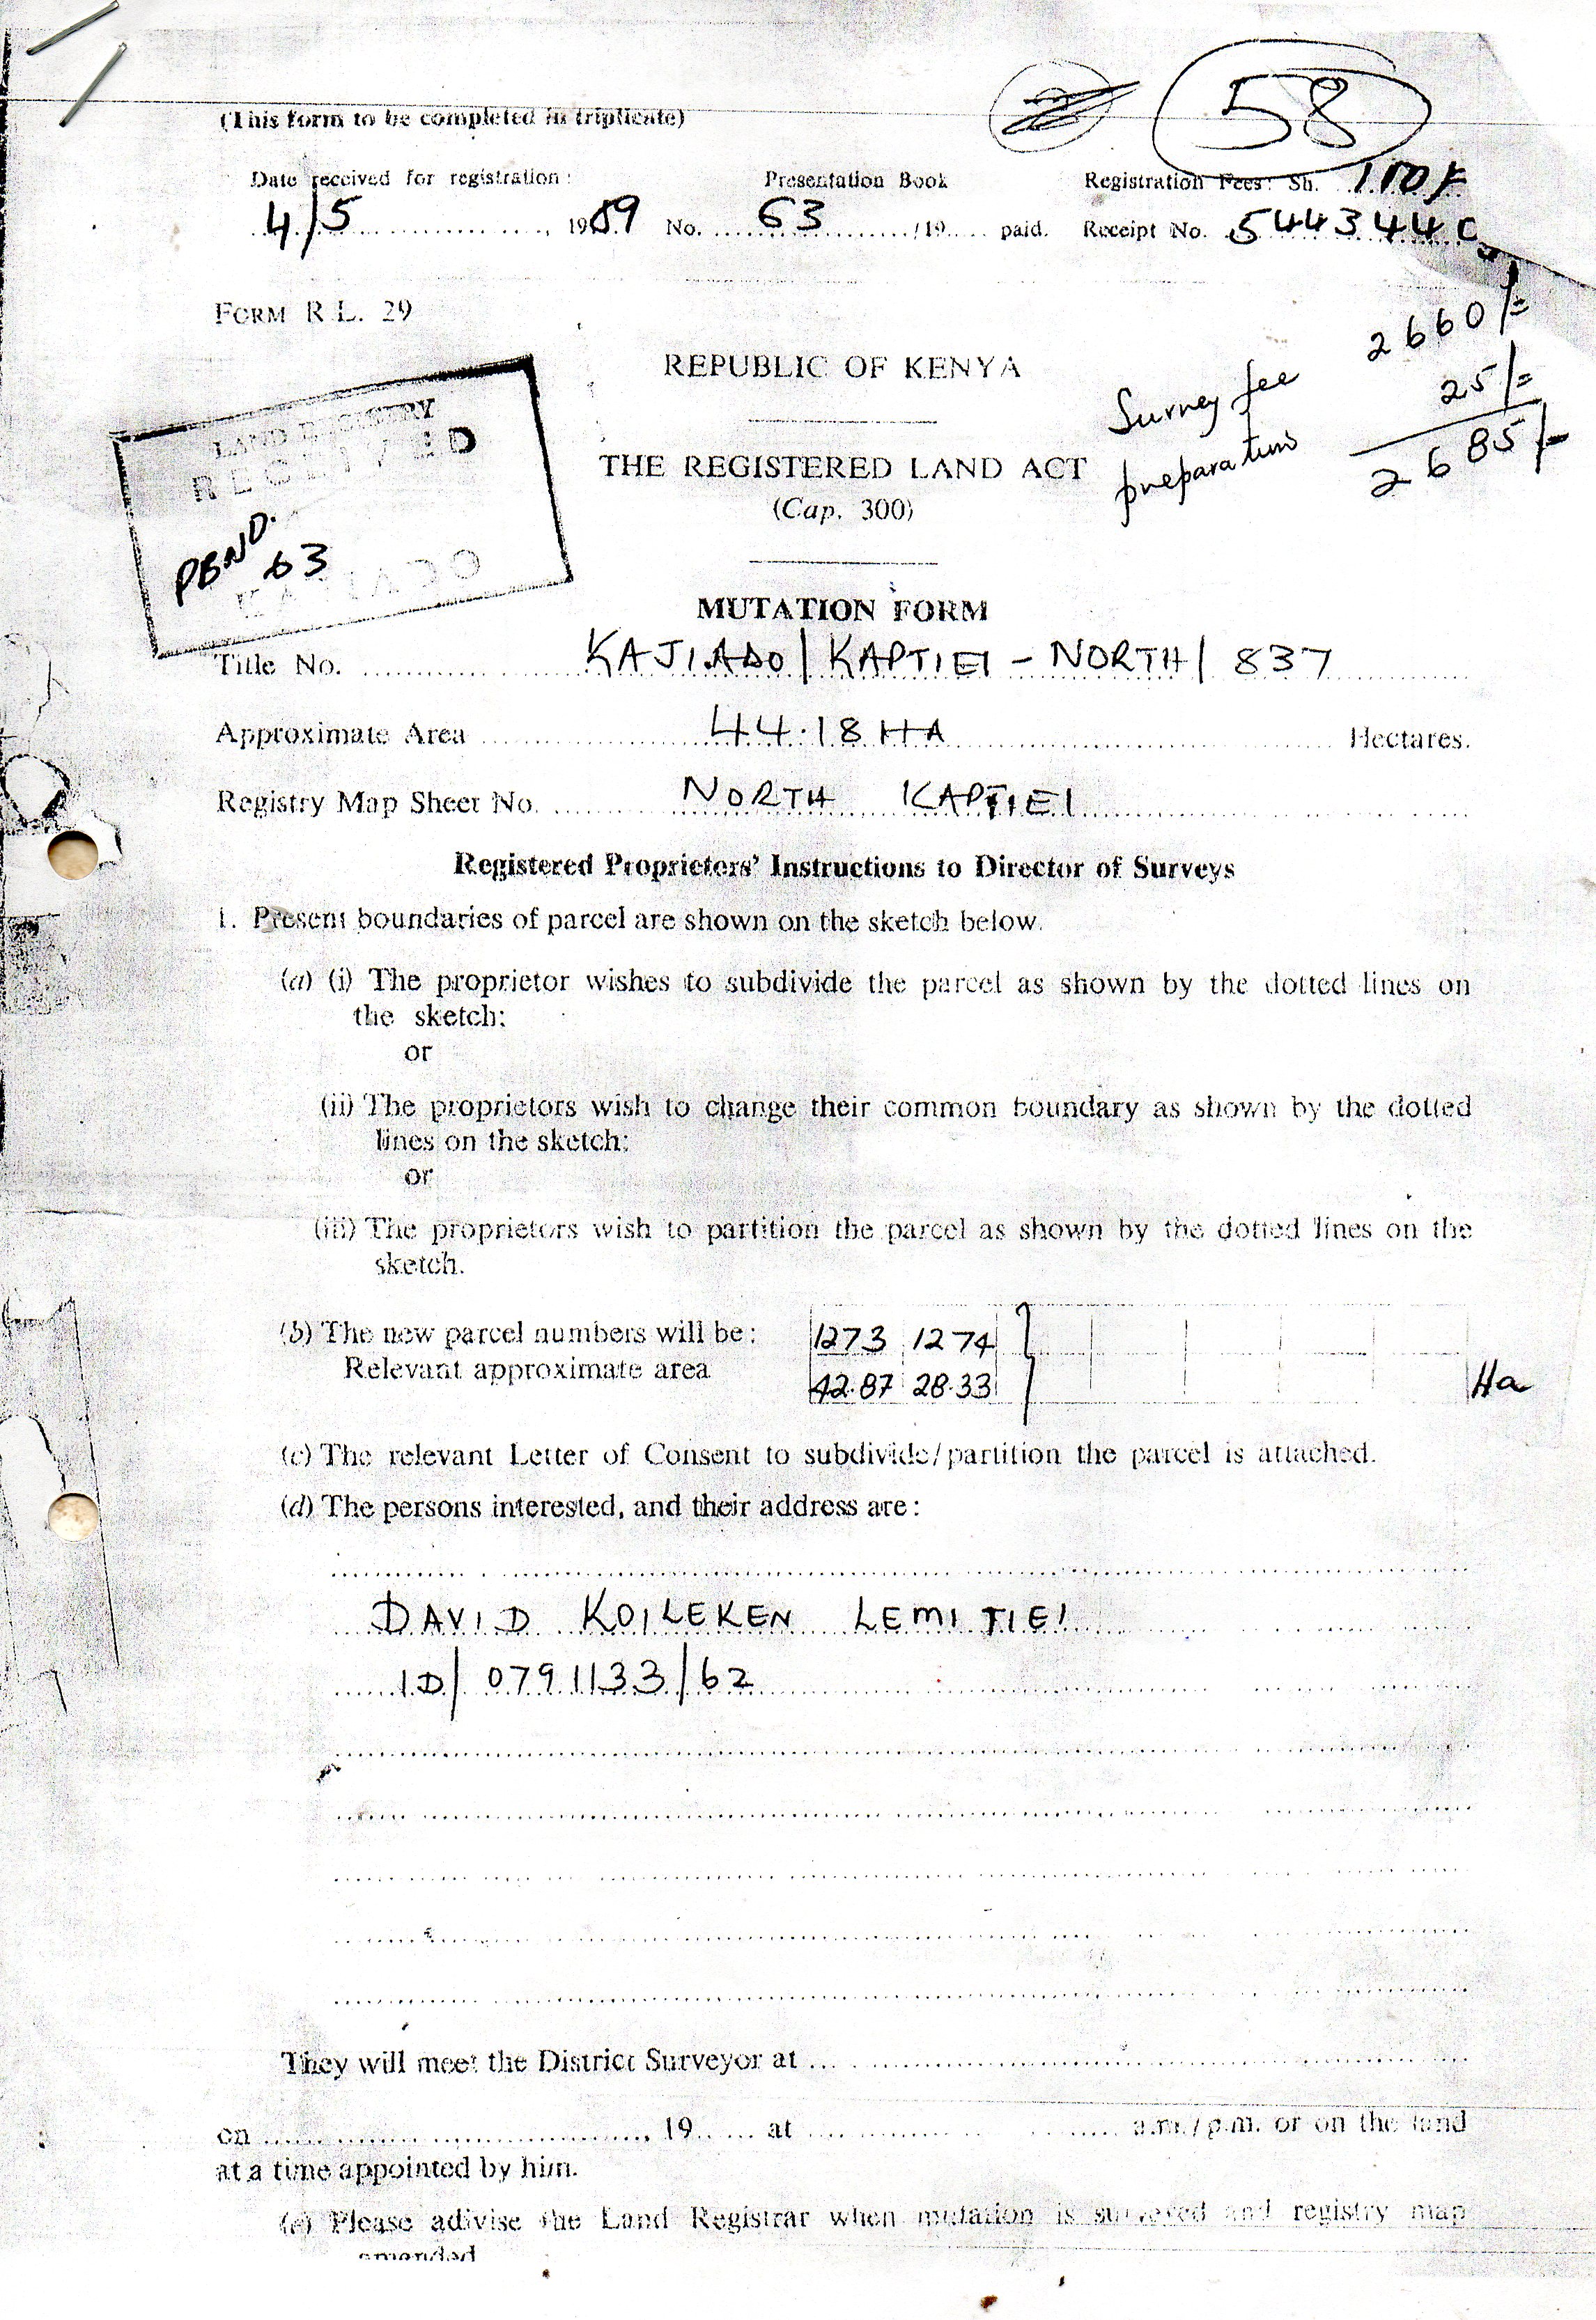 58
(This form to be completed in triplicate)
Date received for registration: Presentation Book Registration Fees: Sh. 110/-
4/5 ......, 1989 No. 63 /19..... paid. Receipt No. 544344
FORM R.L. 29
2660/=
REPUBLIC OF KENYA
Survey fee 25/=
LAND REGISTRY
RECEIVED
THE REGISTERED LAND ACT
preparation 2685/-
(Cap. 300)
PBNO.
63
KAJIADO
MUTATION FORM
Title No. KAJIADO/KAPTIEI - NORTH/ 837
Approximate Area 44.18 HA Hectares.
Registry Map Sheet No. NORTH KAPTIEI
Registered Proprietors' Instructions to Director of Surveys
1. Present boundaries of parcel are shown on the sketch below.
(a) (i) The proprietor wishes to subdivide the parcel as shown by the dotted lines on
the sketch;
or
(ii) The proprietors wish to change their common boundary as shown by the dotted
lines on the sketch;
or
(iii) The proprietors wish to partition the parcel as shown by the dotted lines on the
sketch.
(b) The new parcel numbers will be: 1273 1274
Relevant approximate area 42.87 28.33 Ha
(c) The relevant Letter of Consent to subdivide/partition the parcel is attached.
(d) The persons interested, and their address are:
DAVID KOILEKEN LEMITIEI
ID/ 0791133/62
They will meet the District Surveyor at
on ......, 19...... at ...... a.m./p.m. or on the land
at a time appointed by him.
(e) Please adivise the Land Registrar when mutation is surveyed and registry map
amended